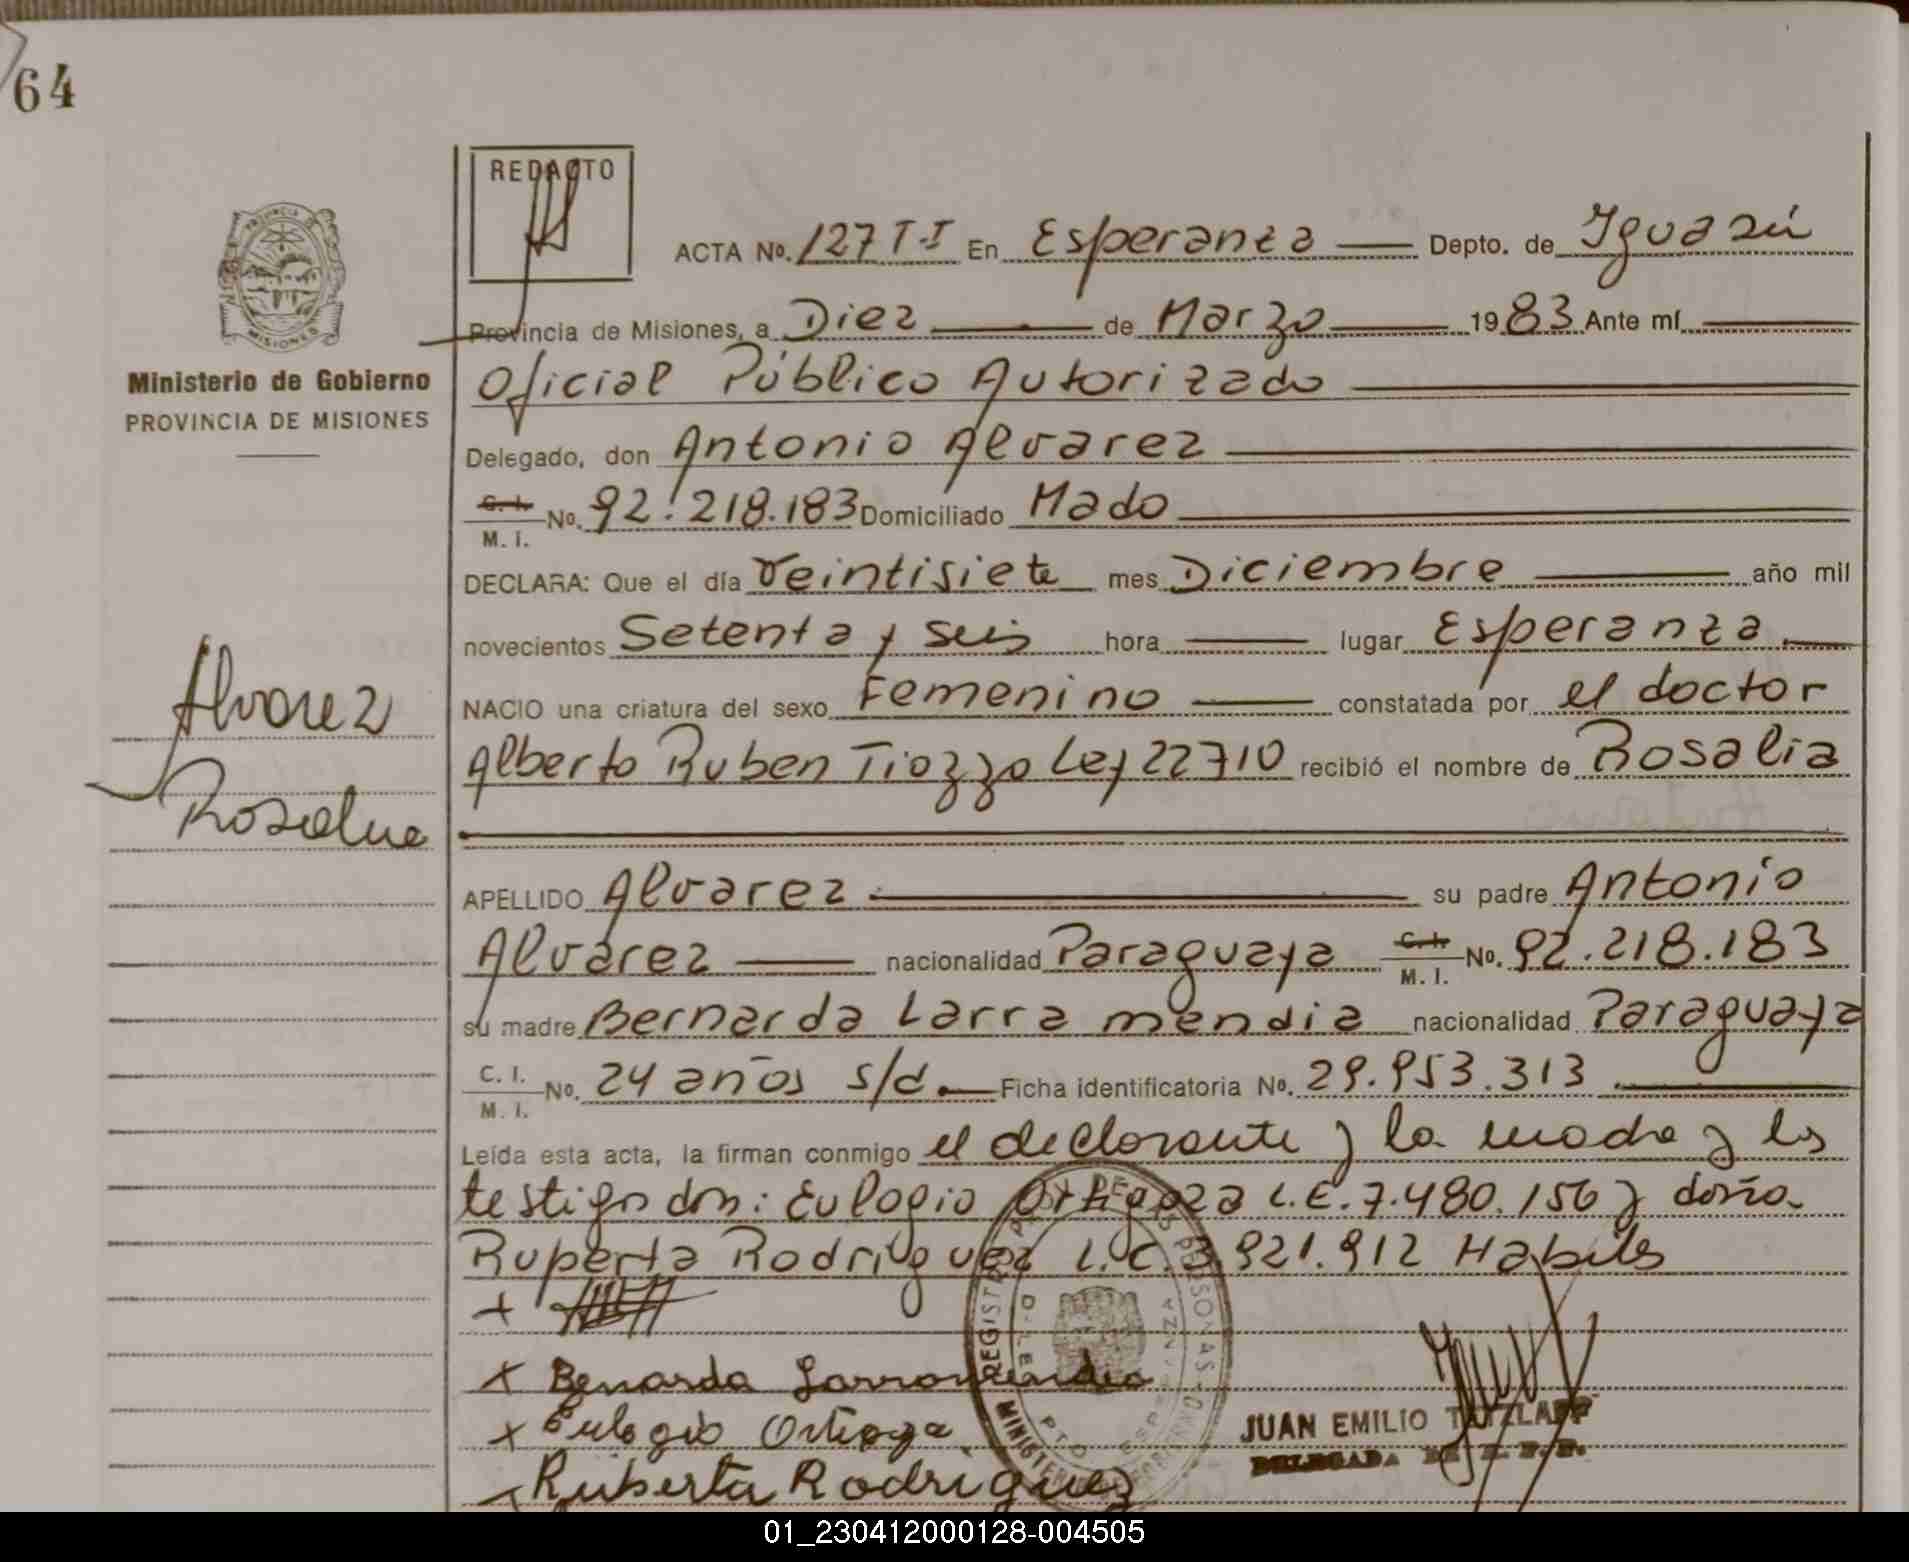 64
REDACTO
ACTA No. 127 T-I En Esperanza Depto. de Iguazú
Provincia de Misiones, a Diez de Marzo 1983 Ante mí
Ministerio de Gobierno
PROVINCIA DE MISIONES
Oficial Público Autorizado
Delegado, don Antonio Alvarez
C. I. M. I. No. 92.218.183 Domiciliado Mado
DECLARA: Que el día Veintisiete mes Diciembre año mil
novecientos Setenta y seis hora lugar Esperanza
Alvarez
NACIO una criatura del sexo Femenino constatada por el doctor
Alberto Ruben Tiozzo Ley 22710 recibió el nombre de Rosalia
Rosalia
APELLIDO Alvarez su padre Antonio
Alvarez nacionalidad Paraguaya C. I. M. I. No. 92.218.183
su madre Bernarda Larramendia nacionalidad Paraguaya
C. I. M. I. No. 24 años s/d. Ficha identificatoria No. 29.953.313
Leída esta acta, la firman conmigo el declarante y la madre y los
testigos don: Eulogio Ortigoza L.E. 7.480.156 y doña
Ruperta Rodriguez L.C. 921.912 Habiles
+ Benarda Larramendia
+ Eulogio Ortigoza
Ruberta Rodriguez
JUAN EMILIO
DELEGADA DE R. P. P.
01_230412000128-004505